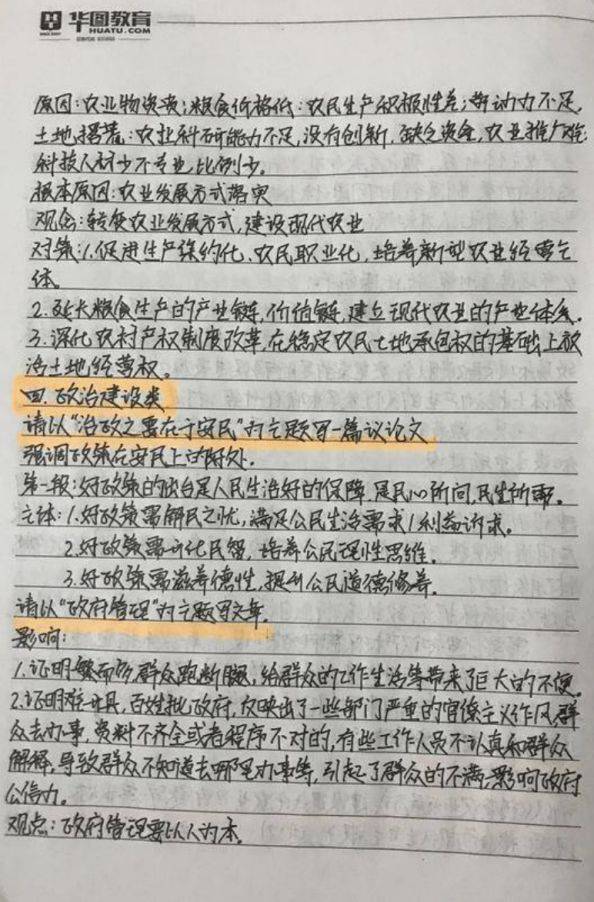 华图教育
HUATU.COM
原因:农业物资贵;粮食价格低:农民生产积极性差;劳动力不足,
土地撂荒:农业科研能力不足,没有创新,缺乏资金,农业推广难;
科技人材少不专业,比例少。
根本原因:农业发展方式落实
观念:转变农业发展方式,建设现代农业
对策:1.促进生产集约化、农民职业化,培养新型农业经营主
体。
2.延长粮食生产的产业链,价值链,建立现代农业的产业体系。
3.深化农村产权制度改革,在稳定农民土地承包权的基础上放
活土地经营权。
四.政治建设类
请以“治政之要在于安民”为主题写一篇议论文
强调政策在安民上的好处.
第一段:好政策的出台是人民生活好的保障,是民心所向,民生所重。
主体:1.好政策需解民之忧,满足公民生活需求/利益诉求。
2.好政策需开化民智,培养公民理性思维。
3.好政策需滋养德性,提升公民道德修养。
请以“政府管理”为主题写文章.
影响:
1.证明繁而多,群众跑断腿,给群众的工作生活等带来了巨大的不便。
2.证明难开具,百姓批政府,反映出了一些部门严重的官僚主义作风,群
众去办事,资料不齐全或者程序不对的,有些工作人员不认真和群众
解释,导致群众不知道去哪里办事等,引起了群众的不满,影响政府
公信力。
观点:政府管理要以人为本.